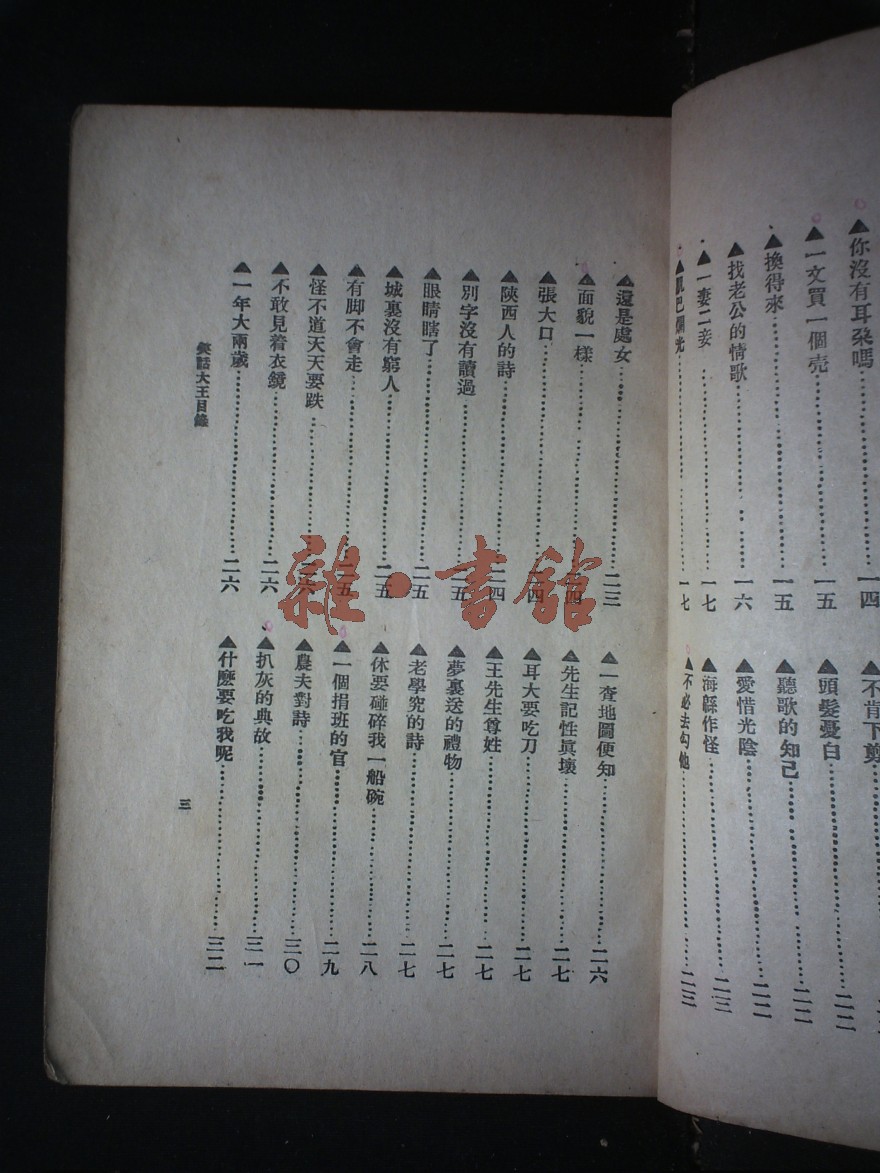 ▲你沒有耳朶嗎……一四
▲一文買一個壳……一五
▲換得來……一五
▲找老公的情歌……一六
▲一妻二妾……一七
光……一七
▲不肯下剪
▲頭髮憂白……二二
▲聽歌的知己……二二
▲愛惜光陰……二二
▲海縣作怪……二三
▲不必去勾他……二三
▲還是處女……二三
▲面貌一樣……二四
▲張大口……二四
▲陝西人的詩……二四
▲別字沒有讀過……二五
▲眼睛瞎了……二五
▲城裏沒有窮人……二五
▲有脚不會走……二五
▲怪不道天天要跌……二六
▲不敢見着衣鏡……二六
▲一年大兩歲……二六
▲一查地圖便知……二六
▲先生記性眞壞……二七
▲耳大要吃刀……二七
▲王先生尊姓……二七
▲夢裏送的禮物……二七
▲老學究的詩……二七
▲休要碰碎我一船碗……二八
▲一個捐班的官……二九
▲農夫對詩……三〇
▲扒灰的典故……三一
▲什麽要吃我呢……三二
笑話大王目錄
三
雜·書館